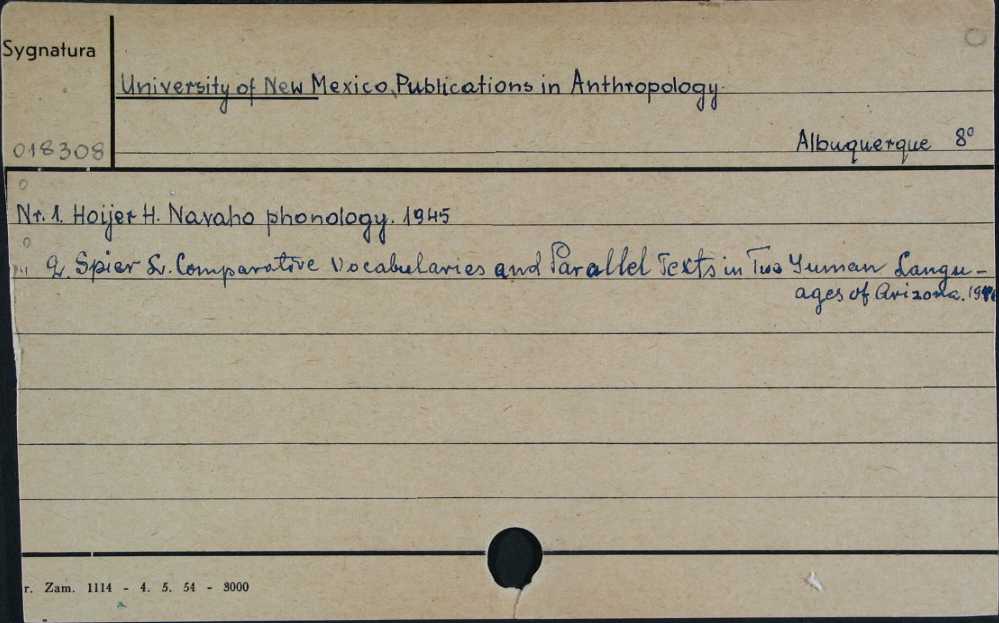 Sygnatura
University of New Mexico, Publications in Anthropology.
Albuquerque 8°
018308
Nr. 1. Hoijer H. Navaho phonology. 1945
" 2. Spier L. Comparative Vocabularies and Parallel Texts in Two Yuman Langu-
ages of Arizona. 1946
r. Zam. 1114 - 4. 5. 54 - 3000